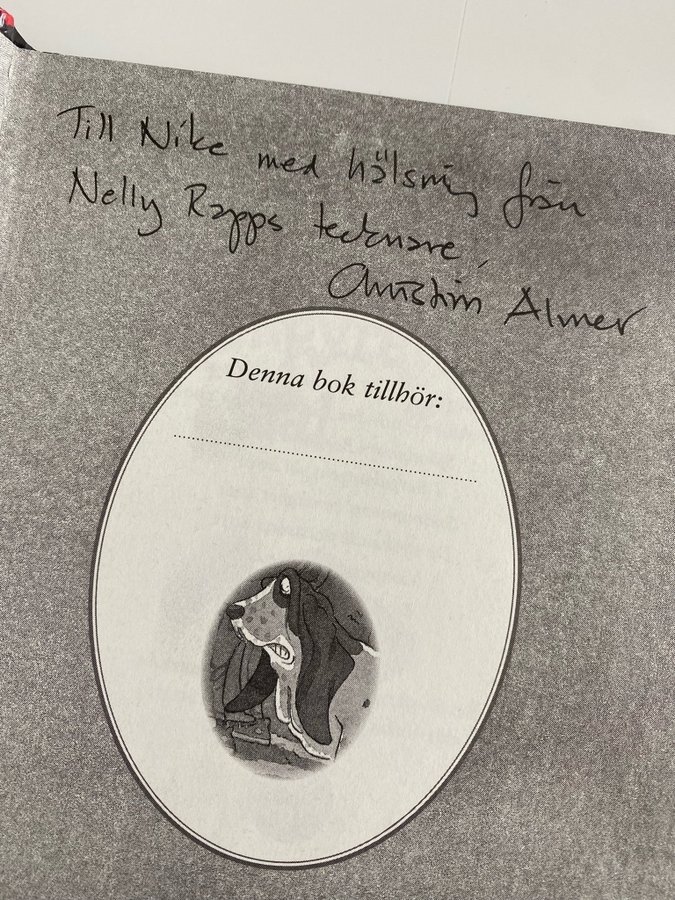 Till Nike med hälsning från
Nelly Rapps tecknare,
Christina Alvner
Denna bok tillhör: